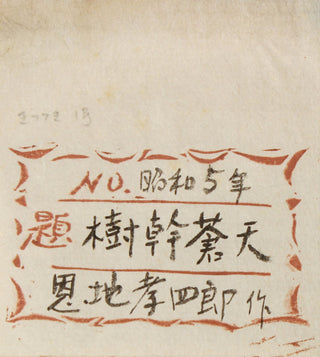 NO. 昭和5年
題 樹幹蒼天
恩地孝四郎 作